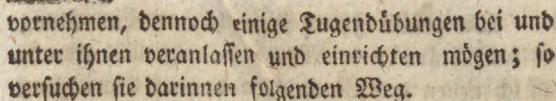 vornehmen, dennoch einige Tugendübungen bei und
unter ihnen veranlassen und einrichten mögen; so
versuchen sie darinnen folgenden Weg.